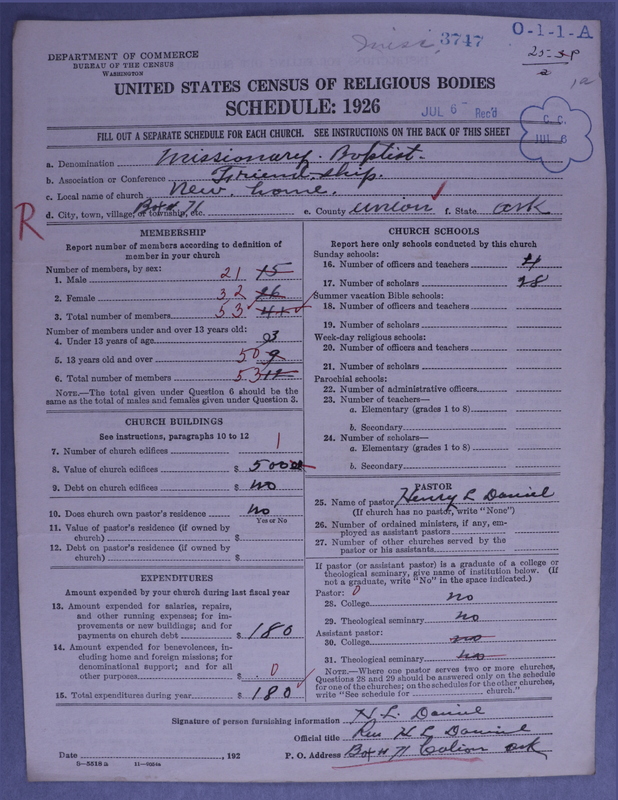 Miss. 3747
O-1-1-A
DEPARTMENT OF COMMERCE
BUREAU OF THE CENSUS
WASHINGTON
UNITED STATES CENSUS OF RELIGIOUS BODIES
SCHEDULE: 1926
JUL 6 Rec'd
C. C.
JUL 6
FILL OUT A SEPARATE SCHEDULE FOR EACH CHURCH. SEE INSTRUCTIONS ON THE BACK OF THIS SHEET
a. Denomination Missionary Baptist.
b. Association or Conference Friendship.
c. Local name of church New home.
d. City, town, village, or township, etc. Box # 71 e. County Union f. State ark
R
MEMBERSHIP
Report number of members according to definition of
member in your church
Number of members, by sex:
1. Male 21 15
2. Female 32 26
3. Total number of members 53 41
Number of members under and over 13 years old:
4. Under 13 years of age 3
5. 13 years old and over 50 9
6. Total number of members 53 12
NOTE.—The total given under Question 6 should be the
same as the total of males and females given under Question 3.
CHURCH BUILDINGS
See instructions, paragraphs 10 to 12
7. Number of church edifices 1
8. Value of church edifices $ 500
9. Debt on church edifices $ No
10. Does church own pastor's residence No
Yes or No
11. Value of pastor's residence (if owned by
church) $
12. Debt on pastor's residence (if owned by
church) $
EXPENDITURES
Amount expended by your church during last fiscal year
13. Amount expended for salaries, repairs,
and other running expenses; for im-
provements or new buildings; and for
payments on church debt $ 180
14. Amount expended for benevolences, in-
cluding home and foreign missions; for
denominational support; and for all
other purposes $ 0
15. Total expenditures during year $ 180
CHURCH SCHOOLS
Report here only schools conducted by this church
Sunday schools:
16. Number of officers and teachers 4
17. Number of scholars 28
Summer vacation Bible schools:
18. Number of officers and teachers
19. Number of scholars
Week-day religious schools:
20. Number of officers and teachers
21. Number of scholars
Parochial schools:
22. Number of administrative officers
23. Number of teachers—
a. Elementary (grades 1 to 8)
b. Secondary
24. Number of scholars—
a. Elementary (grades 1 to 8)
b. Secondary
PASTOR
25. Name of pastor Henry L Daniel
(If church has no pastor, write "None")
26. Number of ordained ministers, if any, em-
ployed as assistant pastors
27. Number of other churches served by the
pastor or his assistants
If pastor (or assistant pastor) is a graduate of a college or
theological seminary, give name of institution below. (If
not a graduate, write "No" in the space indicated.)
Pastor: 0
28. College no
29. Theological seminary no
Assistant pastor:
30. College no
31. Theological seminary no
NOTE.—Where one pastor serves two or more churches,
Questions 28 and 29 should be answered only on the schedule
for one of the churches; on the schedules for the other churches,
write "See schedule for church."
Signature of person furnishing information H L. Daniel
Official title Rev H L Daniel
Date , 192 P. O. Address Box # 71 Calion ark
8-5518 a